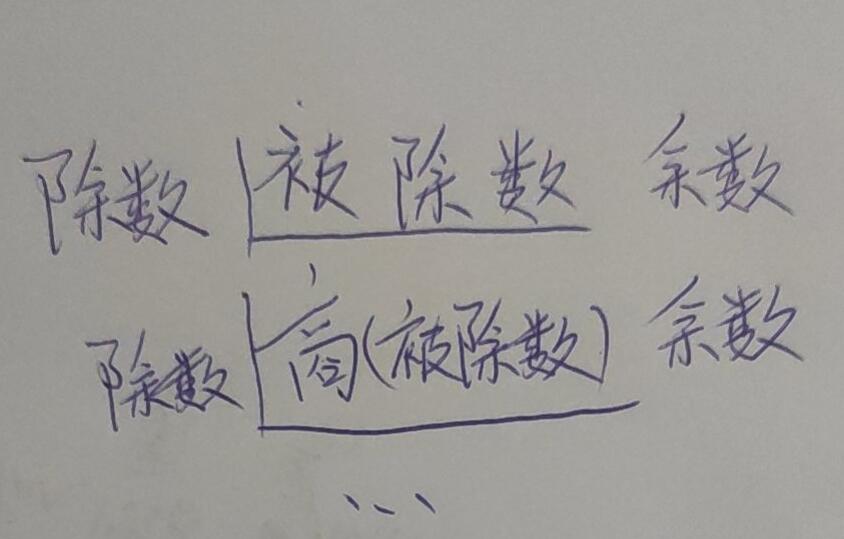 除数 被除数 余数
除数 商(被除数) 余数
...